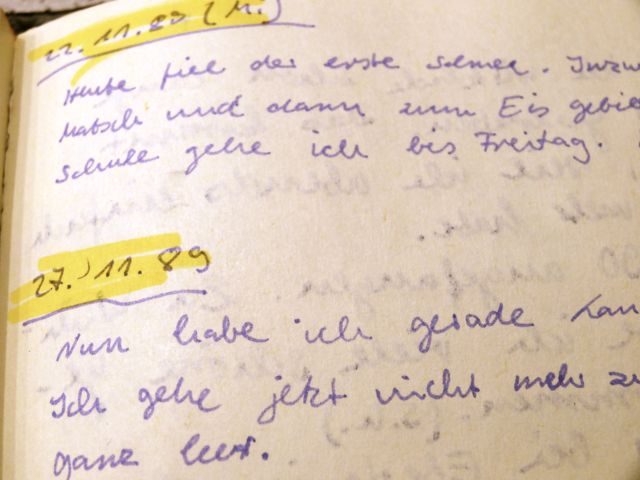 22. 11. 89 (Mi.)
Heute fiel der erste Schnee.
Matsch und dann zum Eis
Schule gehe ich bis Freitag.
27. 11. 89
Nun habe ich gerade
Ich gehe jetzt nicht mehr
ganz leer.